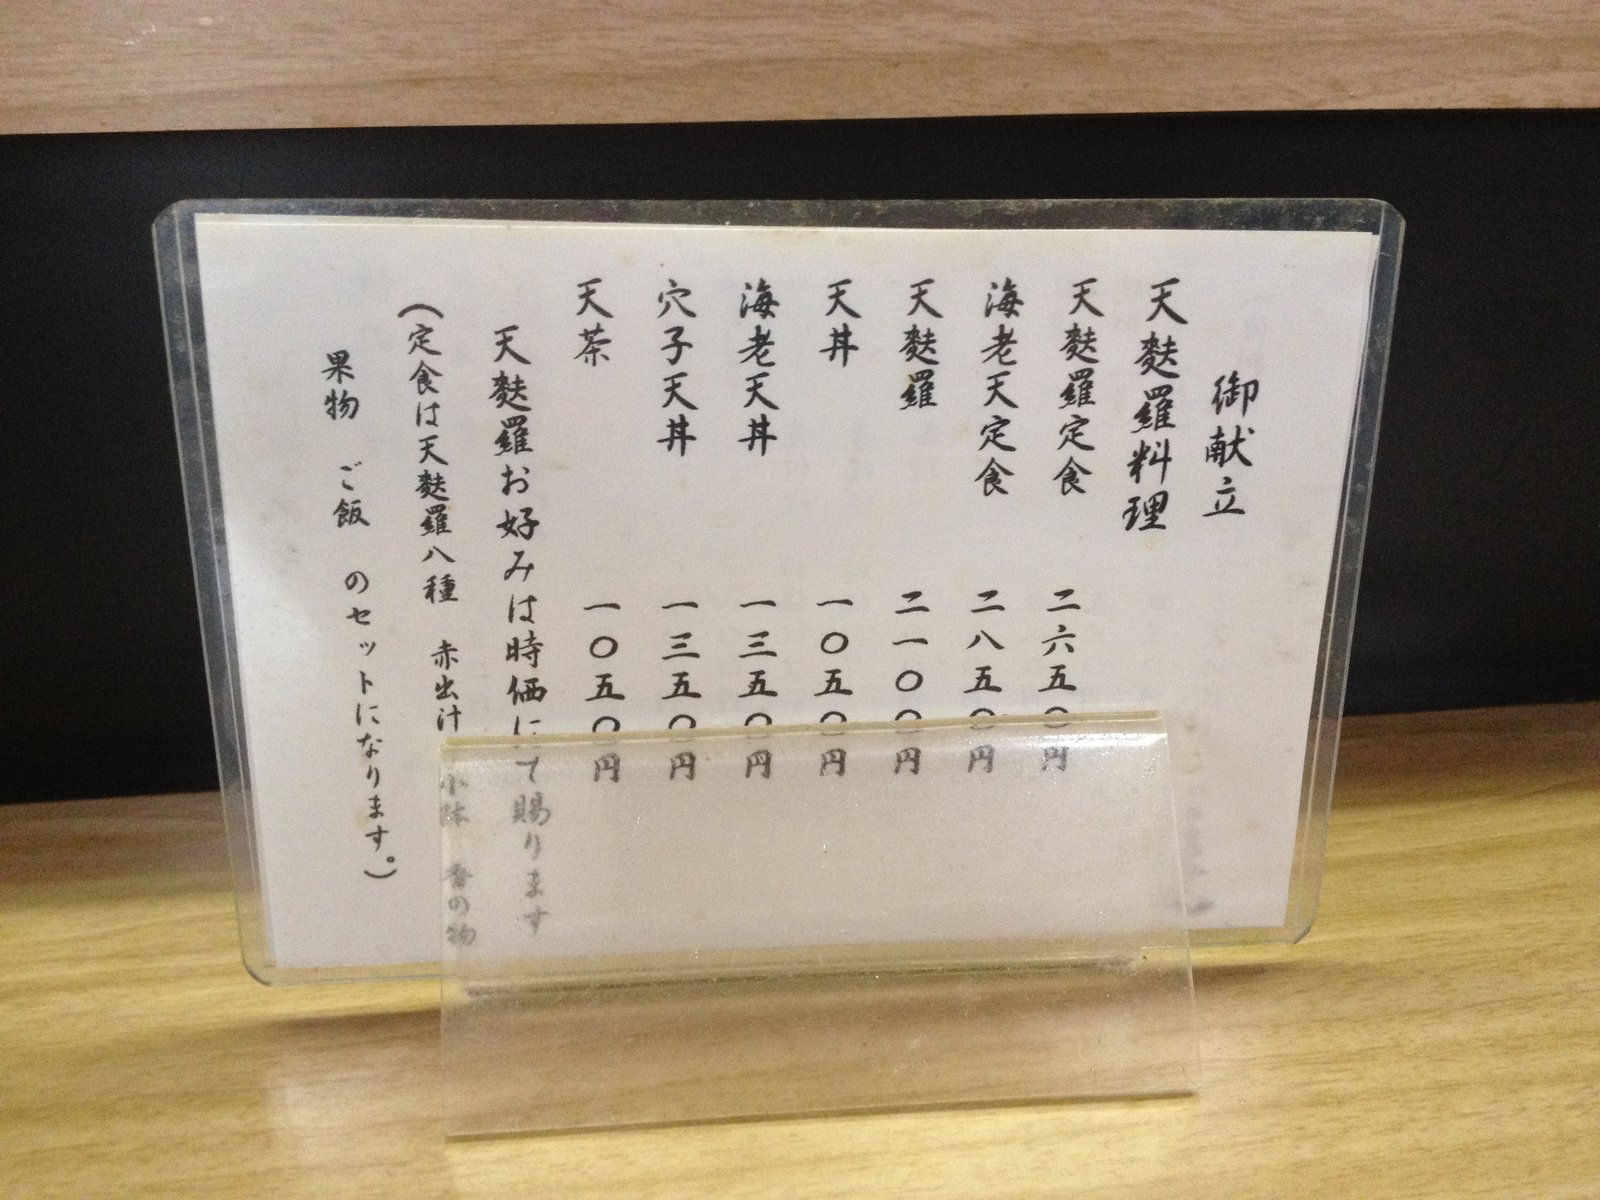 御献立
天麩羅料理
天麩羅定食 二六五〇円
海老天定食 二八五〇円
天麩羅 二一〇〇円
天丼 一〇五〇円
海老天丼 一三五〇円
穴子天丼 一三五〇円
天茶 一〇五〇円
天麩羅お好みは時価にて賜ります
(定食は天麩羅八種 赤出汁 小鉢 香の物
果物 ご飯 のセットになります。)